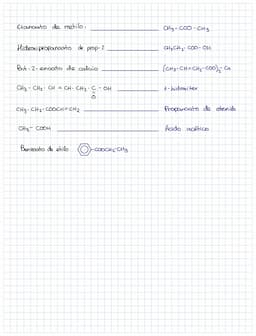 Etanoato de metilo. CH3 - COO - CH3
de prop-2 COO - CH3
But-2-enoato de calcio (CH3-CH=CH2-COO)2- Ca
CH3 - CH2 - CH = CH - CH2 - C - OH
O
CH3 - CH2 - COOCH=CH2 Propanoato de etenilo
CH3 - COOH Ácido acético
Benzoato de etilo -COOCH2-CH3